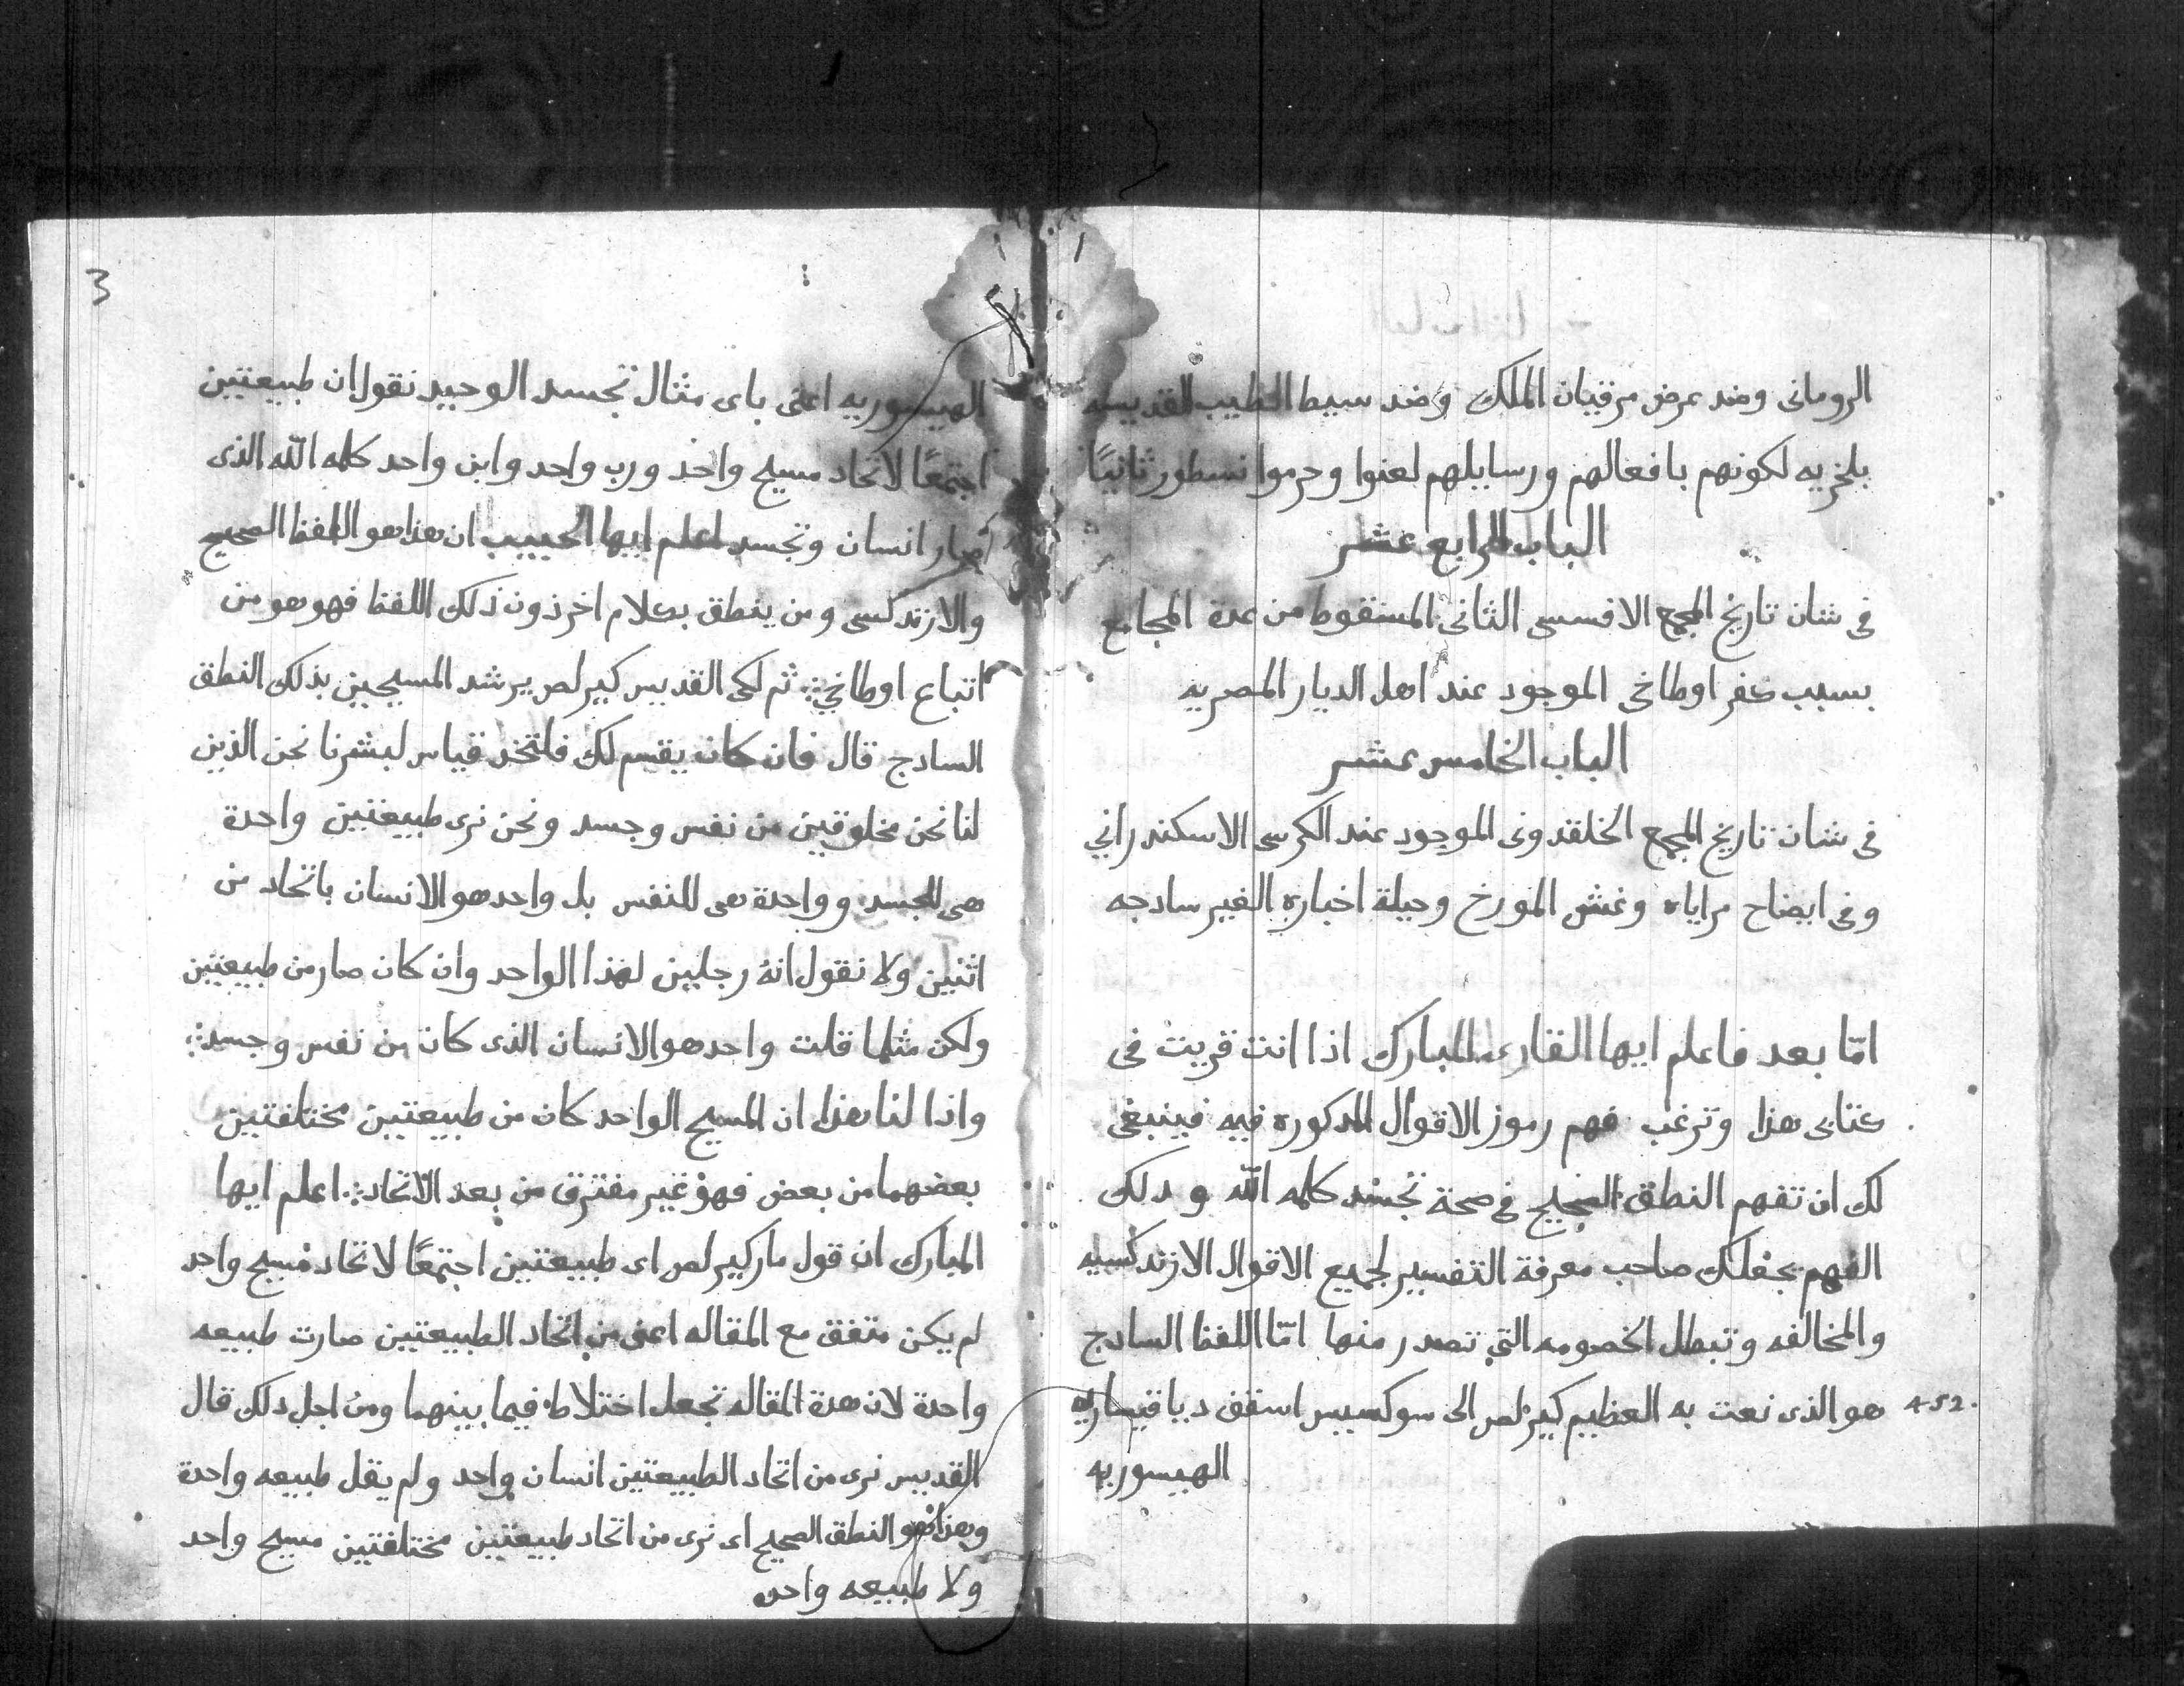 الرومانى وضد عرض مرقيان الملك وضد سيط الطيب القديسه
بلخريه لكونهم بافعالهم ورسايلهم لعنوا وحرموا نسطور ثانيًا
الباب الرابع عشر
فى شان تاريخ المجمع الافسسى الثانى المسقوط من عدة المجامع
بسبب كفر اوطاخى الموجود عند اهل الديار المصريه
الباب الخامس عشر
فى شان تاريخ المجمع الخلقدونى الموجود عند الكرسى الاسكندراني
وفى ايضاح مراياه وغش المورخ وحيلة اخباره الغير سادجه
امّا بعد فاعلم ايها القارى المبارك اذا انت قريت فى
كتابى هذا وترغب فهم رموز الاقوال المدكوره فيه فينبغى
لك ان تفهم النطق الصحيح فى صحة تجسد كلمه اللّه ودلك
الفهم يجعلك صاحب معرفة التفسير لجميع الاقوال الارتدكسيه
والمخالفه وتبطل الخصومه التي تصدر منها امّا اللفظ السادج
452. هو الذى نعت به العظيم كيرلص الى سوكسيس اسقف ديا قيساريه
الهيسوريه
3
الهيسوريه اعنى باى مثال تجسد الوحيد نقول ان طبيعتين
اجتمعًا لاتحاد مسيح واحد ورب واحد وابن واحد كلمه اللّه الذى
صار انسان وتجسد اعلم ايها الحبيب ان هذا هو اللفظ الصحيح
والارتدكسى ومن ينطق بكلام اخر دون ذلك اللفظ فهو هو من
اتباع اوطاخي: ثم لكى القديس كيرلص يرشد المسيحيين بذلك النطق
السادج قال فان كان يقسم لك فلتخد قياس لبشرنا نحن الذين
لنا نحن مخلوقين من نفس وجسد ونحن نرى طبيعتين واحدة
هى للجسد وواحدة هى للنفس بل واحد هو الانسان باتحاد من
اثنين ولا نقول انه رجلين لهذا الواحد وان كان صار من طبيعتين
ولكن مثلما قلت واحد هو الانسان الذى كان من نفس وجسد:
واذا لنا هذا ان المسيح الواحد كان من طبيعتين مختلفتين
بعضهما من بعض فهو غير مفترق من بعد الاتحاد: اعلم ايها
المبارك ان قول مار كيرلص اى طبيعتين اجتمعًا لاتحاد مسيح واحد
لم يكن متفق مع المقاله اعنى من اتحاد الطبيعتين صارت طبيعه
واحدة لان هدة المقاله تجعل اختلاط فيما بينهما ومن اجل دلك قال
القديس نرى من اتحاد الطبيعتين انسان واحد ولم يقل طبيعه واحدة
وهذا هو النطق الصحيح اى نرى من اتحاد طبيعتين مختلفتين مسيح واحد
ولا طبيعه واحده